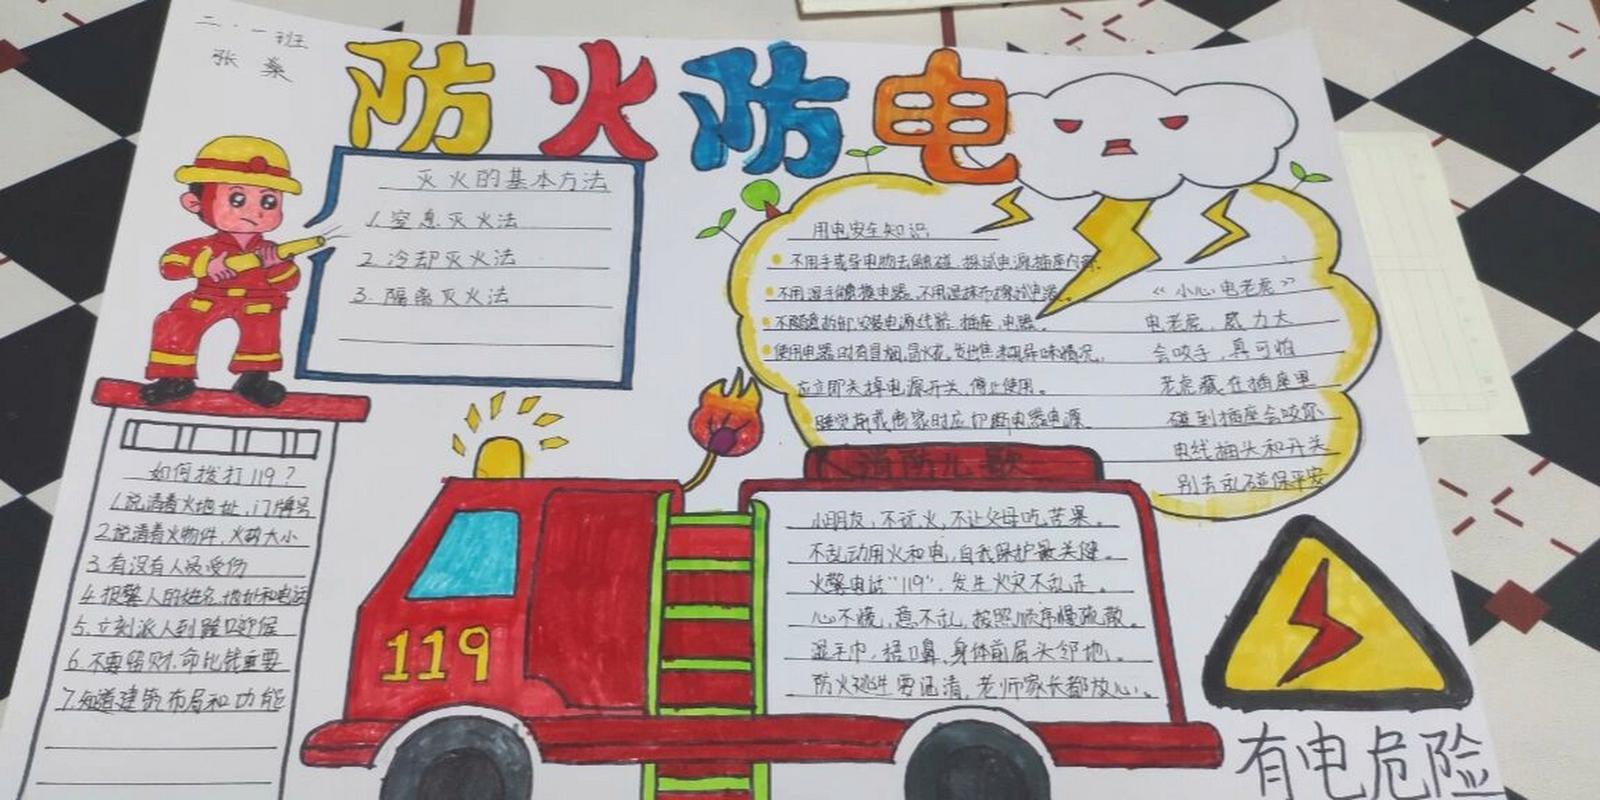 二·一班
张燊
防火防电
灭火的基本方法
1.窒息灭火法
2.冷却灭火法
3.隔离灭火法
用电安全知识
不用手或导电物去触碰、探试电源插座内部。
不用湿手触摸电器,不用湿抹布擦拭电器。
不随意拆卸安装电源线路、插座、电器。
使用电器时有冒烟,冒火花,发出焦糊异味情况,
应立即关掉电源开关,停止使用。
睡觉前或离家时应切断电器电源
《小心电老虎》
电老虎,威力大
会咬手,真可怕
老虎藏在插座里
碰到插座会咬你
电线插头和开关
别去乱碰保平安
如何拨打119?
1.说清着火地址,门牌号
2.说清着火物件,火势大小
3.有没有人员受伤
4.报警人的姓名、地址和电话
5.立刻派人到路口迎候
6.不要贪财,命比钱重要
7.知道建筑布局和功能
消防儿歌
小朋友,不玩火,不让父母吃苦果。
不乱动用火和电,自我保护最关键。
火警电话“119”,发生火灾不乱走。
心不慌,意不乱,按照顺序慢疏散。
湿手巾,捂口鼻,身体前屈头邻地。
防火逃生要记清,老师家长都放心。
119
有电危险